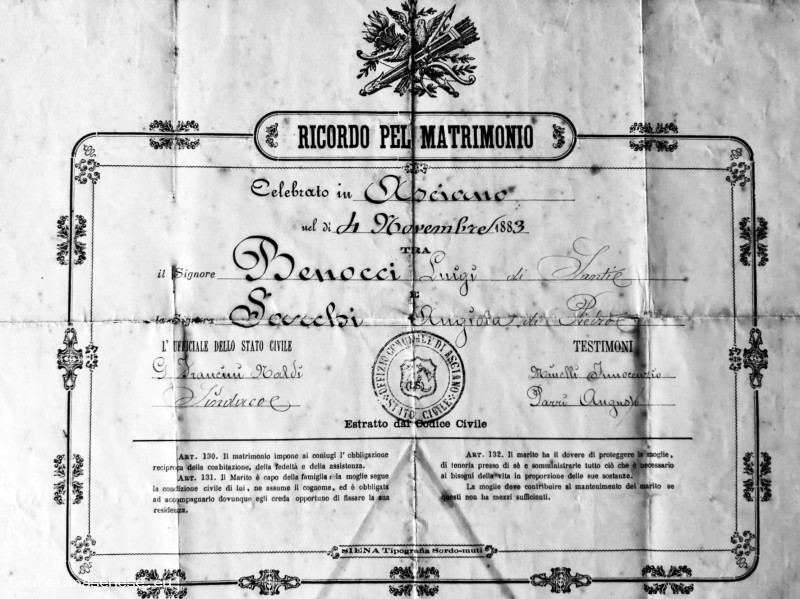 RICORDO PEL MATRIMONIO
Celebrato in Asciano
nel dì 4 Novembre 1883
TRA
il Signore Benocci Luigi di Santi
E
la Signora Angiola di Pietro
L' UFFICIALE DELLO STATO CIVILE
G. Naldi
Sindaco
UFFIZIO COMUNALE DI ASCIANO
STATO CIVILE
TESTIMONI
Minelli Innocenzio
Parri Augusto
Estratto dal Codice Civile
ART. 130. Il matrimonio impone ai coniugi l' obbligazione
reciproca della coabitazione, della fedeltà e della assistenza.
ART. 131. Il Marito è capo della famiglia: la moglie segue
la condizione civile di lui, ne assume il cognome, ed è obbligata
ad accompagnarlo dovunque egli creda opportuno di fissare la sua
residenza.
ART. 132. Il marito ha il dovere di proteggere la moglie,
di tenerla presso di sè e somministrarle tutto ciò che è necessario
ai bisogni della vita in proporzione delle sue sostanze.
La moglie deve contribuire al mantenimento del marito se
questi non ha mezzi sufficienti.
SIENA Tipografia Sordo-muti